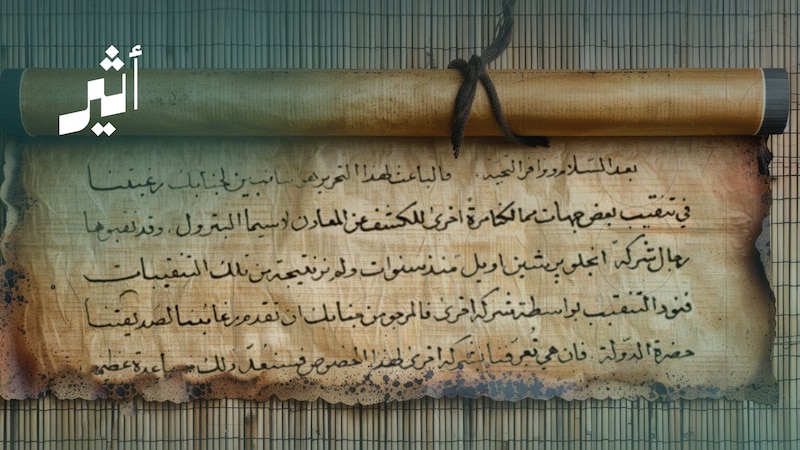 أثير
بعد السلام ووافر التحية. فالباعث لهذا التحرير هو مبين لجنابك رغبتنا
في تنقيب بعض جهات ممالكنا مرة أخرى للكشف عن المعادن لا سيما البترول. وقد نقبوها
رجال شركة انجلو برشين اويل منذ سنوات ولم نر نتيجة من تلك التنقيبات
فنود التنقيب بواسطة شركة اخرى فالمرجو من جنابك ان تقدم رغائبنا لصديقتنا
حضرة الدولة. فان هي تعرفنا بشركة اخرى لهذا الخصوص فسنعد ذلك مساعدة عظيمة